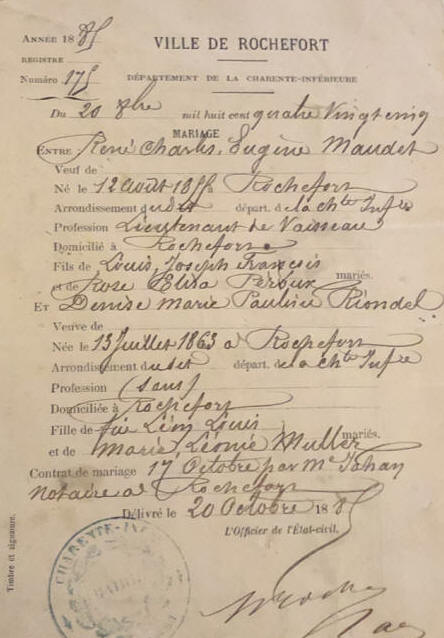 ANNÉE 1885
VILLE DE ROCHEFORT
REGISTRE
Numéro 175
DÉPARTEMENT DE LA CHARENTE-INFÉRIEURE
Du 20 8bre mil huit cent quatre Vingt cinq
MARIAGE
ENTRE René Charles Eugène Maudet
Veuf de
Né le 12 août 1855 Rochefort
Arrondissement dudit départ. de la chte Infre
Profession Lieutenant de Vaisseau
Domicilié à Rochefort
Fils de Louis Joseph François
et de Rose Elisa Péroux mariés.
ET Denise Marie Pauline Riondel
Veuve de
Née le 13 Juillet 1863 à Rochefort
Arrondissement dudit départ. de la chte Infre
Profession (sans)
Domiciliée à Rochefort
Fille de feu Léon Louis
et de Marie Léonie Muller mariés.
Contrat de mariage 17 Octobre par Me
notaire à Rochefort
Délivré le 20 Octobre 1885
L'Officier de l'État-civil.
Timbre et signature.